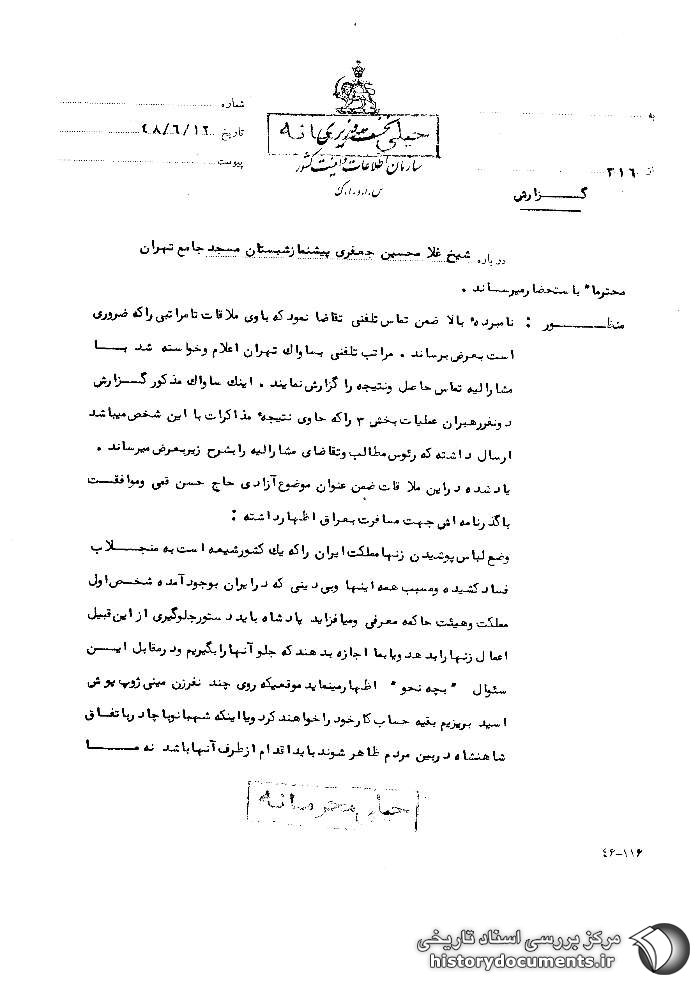 به
شماره
تاریخ ٤٨/٦/١٢
پیوست
از ٣١٦
نخست وزیری
خیلی محرمانه
سازمان اطلاعات و امنیت کشور
س.ا.و.ا.ک
گـــزارش
درباره شیخ غلامحسین جعفری پیشنماز شبستان مسجد جامع تهران
محترما" باستحضار میرساند .
منظـــور : نامبرده بالا ضمن تماس تلفنی تقاضا نمود که باوی ملاقات تا مراتبی راکه ضروری
است بعرض برساند . مراتب تلفنی بساواك تهران اعلام وخواسته شد بـــا
مشارالیه تماس حاصل ونتیجه را گزارش نمایند . اینك ساواك مذکور گـــزارش
دونفر رهبران عملیات بخش ٣ راکه حاوی نتیجه مذاکرات با این شخص میباشد
ارسال داشته که رئوس مطالب وتقاضای مشارالیه را بشرح زیربعرض میرساند .
یادشده دراین ملاقات ضمن عنوان موضوع آزادی حاج حسن قمی وموافقـــت
باگذرنامه اش جهت مسافرت بعراق اظهارداشته :
وضع لباس پوشیدن زنها مملکت ایران راکه یك کشورشیعه است به منجـــلاب
فساد کشیده ومسبب همه اینها وبی دینی که درایران بوجود آمده شخص اول
مملکت وهیئت حاکمه معرفی ومیافزاید پادشاه باید دستورجلوگیری از این قبیل
اعمال زنها را بدهد ویابما اجازه بدهند که جلو آنها را بگیریم ودرمقابل ایـــن
سئوال "بچه نحو" اظهارمینماید موقعیکه روی چند نفرزن مینی ژوپ پوش
اسید بریزیم بقیه حساب کارخود را خواهند کرد ویا اینکه شهبانو باچادر باتفاق
شاهنشاه دربین مردم ظاهر شوند باید اقدام ازطرف آنها باشد نه مـــا
خیلی محرمانه
٤٦-١١٦
مرکز بررسی اسناد تاریخی
historydocuments.ir